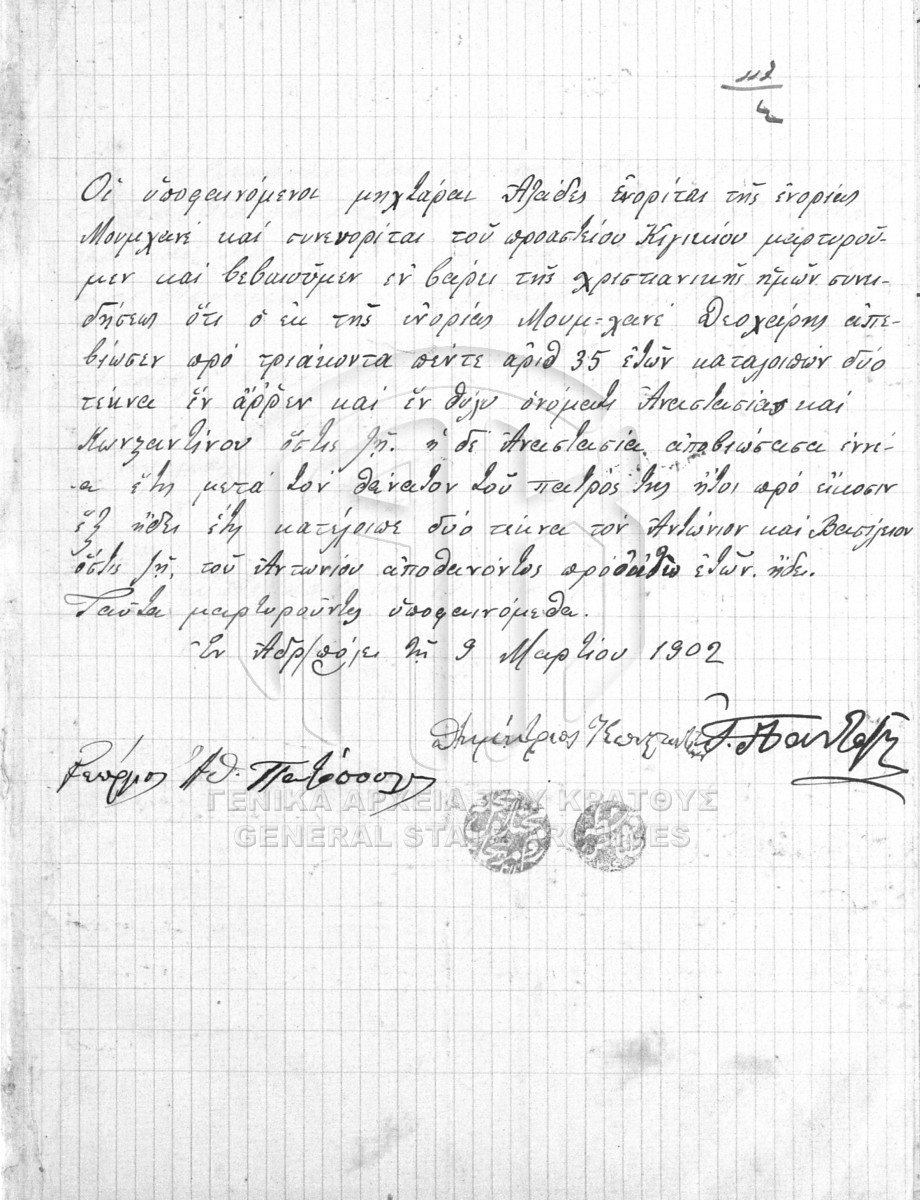 112
Οἱ ὑποφαινόμενοι μηχτάραι Ἀζάδες ἐνορῖται τῆς ἐνορίας
Μουμχανὲ καὶ συνενορῖται τοῦ προαστείου Κιγικίου μαρτυροῦ-
μεν καὶ βεβαιοῦμεν ἐν βάρει τῆς χριστιανικῆς ἡμῶν συνει-
δήσεως ὅτι ὁ ἐκ τῆς ἐνορίας Μουμ=χανὲ Θεοχάρης ἀπε-
βίωσεν πρὸ τριάκοντα πέντε ἀριθ 35 ἐτῶν καταλοιπὼν δύο
τέκνα ἕν ἄῤῥεν καὶ ἕν θῦλυ ὀνόματι Ἀναστασίας καὶ
Κωνσταντίνου ὅστις ζῇ. ἡ δὲ Ἀναστασία ἀποβιώσασα ἐννέ-
α ἔτη μετὰ τὸν θάνατον τοῦ πατρός της ἤτοι πρὸ εἴκοσιν
ἕξ ἤδει ἔτη κατέλοιπε δύο τέκνα τὸν Ἀντώνιον καὶ Βασίλειον
ὅστις ζῇ, τοῦ Ἀντωνίου ἀποθανόντος πρὸ ἐτῶν. ἤδει.
Ταῦτα μαρτυροῦντες ὑποφαινόμεθα.
Ἐν Ἀδρ/πόλει τῇ 9 Μαρτίου 1902
Δημήτριος
Γεώργιος Ἀθ.
ΓΕΝΙΚΑ ΑΡΧΕΙΑ ΤΟΥ ΚΡΑΤΟΥΣ
GENERAL STATE ARCHIVES